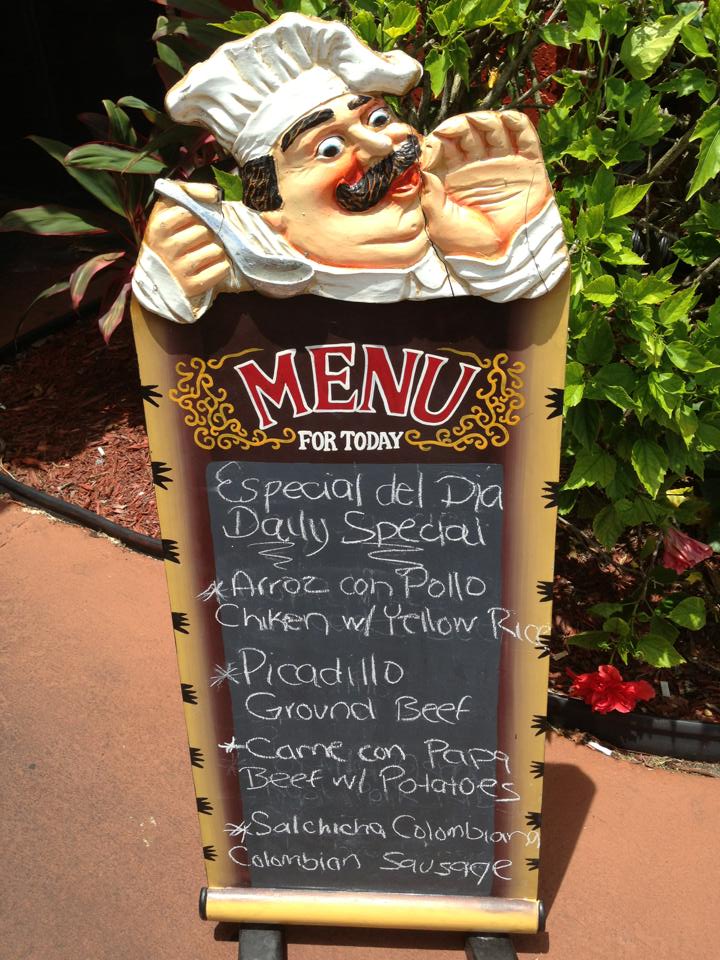 MENU
FOR TODAY
Especial del Dia
Daily Special
*Arroz con Pollo
Chiken w/ Yellow Rice
*Picadillo
Ground Beef
*Carne con Papa
Beef w/ Potatoes
*Salchicha Colombiana
Colombian Sausage